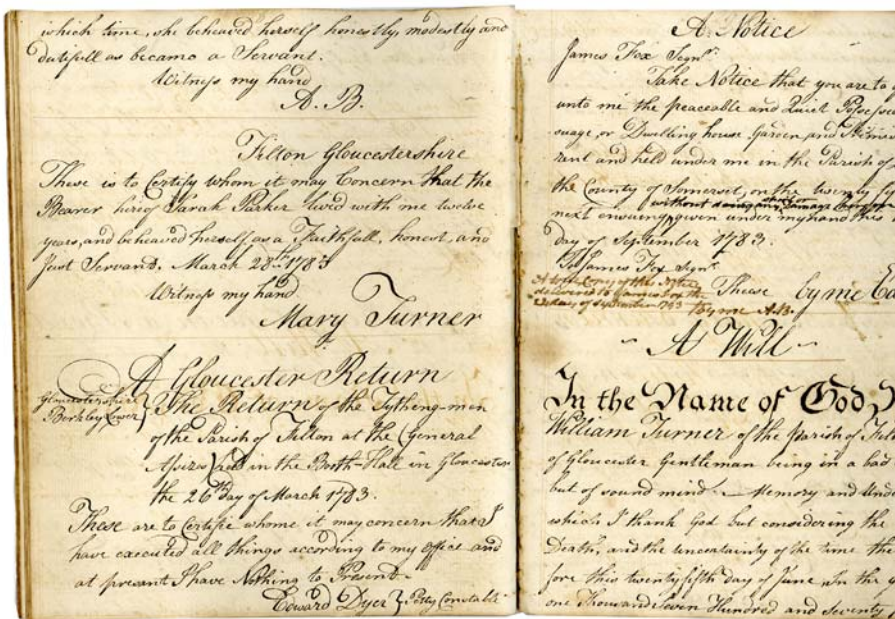 which time, she beheaved herself honestly, modestly and
dutifull as became a Servant.
Witness my hand
A. B.
Filton Gloucestershire
These is to Certify whom it may Concern that the
Bearer hireof Sarah Parker liv'd with me twelve
years, and beheaved herself as a Faithfull, honest, and
Just Servand, March 28th 1783
Witness my hand
Mary Turner
A Gloucester Return
Gloucestershire
Berkley Lower
The Return of the Tytheng-men
of the Parish of Filton at the General
Asizes held in the Booth-Hall in Gloucester
the 26th Day of March 1783.
These are to Certifie whome it may concern that I
have executed all things according to my office and
at present I have Nothing to Present.
Edward Dyer } Petty Constable
A Notice
James Fox Segnr
Take Notice that you are to
unto me the peaceable and Quiet
suage or Dwelling house Garden and
rent and held under me in the Parish of
the County of Somerset, on the twenty
without doing any damage
next ensueing, given under my hand this
day of September 1783.
To James Fox Segnr
A true Copy of this Notice
delivered to James Fox the
day of September 1783 by me A.B.
These by me
A Will
In the Name of God
William Turner of the Parish of
of Gloucester Gentleman being in a bad
but of sound mind Memory and
which I thank God but considering the
Death, and the uncertainty of the time
fore this twenty fifth day of June in the
one Thousand Seven Hundred and seventy